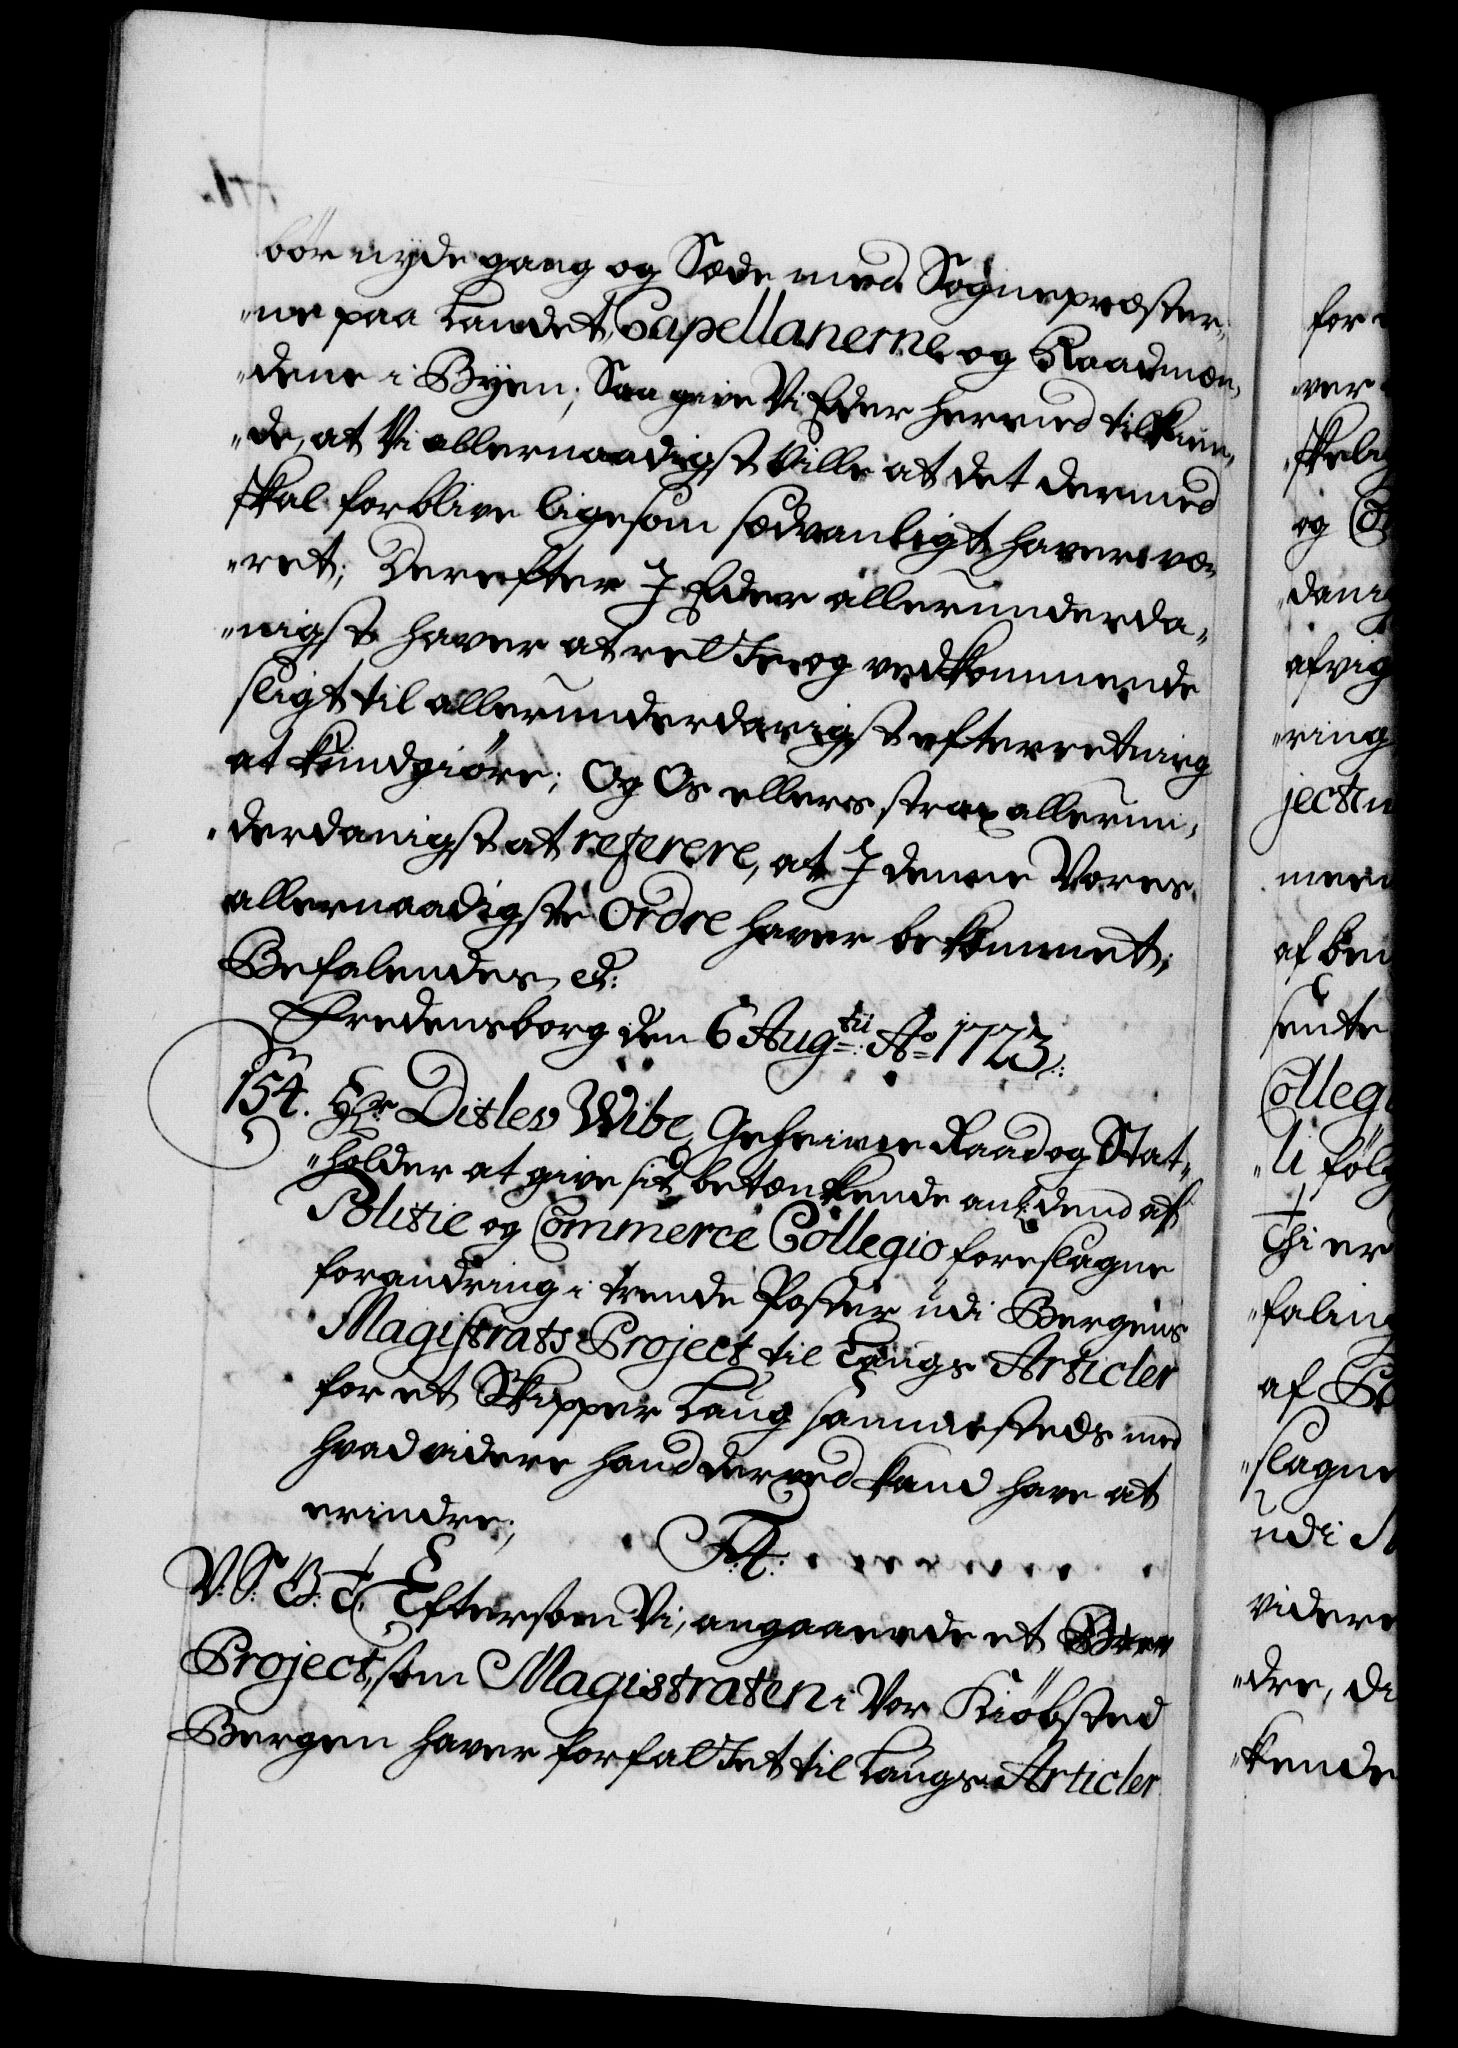 bör nyde gang og Sæde med Sognepræster,,
,,ne paa Landet, Capellanerne og Raadmæn,,
,,dene i Byen; Saa give Vi Eder hermed tilkien,,
,,de, at Vi allernaadigst Ville at det dermed
skal forblive ligesom sædvanligt haver væ,,
,,ret; Derefter I Eder allerunderda,,
,,nigst haver at rette og vedkommende
sligt til allerunderdanigst efterretning
at kundgiöre; Og Os ellers strax allerun,,
,,derdanigst at referere, at I denne Vores
allernaadigste Ordre haver bekommet;
Befalendes, &:
Fredensborg den 6 Aug:tii Ao 1723.
154. Hr. Ditlev Wibe, Geheime Raad og Stat,,
,,holder at give sit betænkende anl: dend af
Politie og Commerce Collegio foreslagne
forandring i trende Poster udi Bergens
Magistrats Project til Laugs Articler
for et Skipper Laug sammesteds med
hvad videre hand derved kand have at
erindre;
F: 4.
V: S: G: T: Eftersom Vi, angaaende et
Project, som Magistraten i Vor Kiöbsted
Bergen haver forfattet til Laugs Articler
for
,,ver
,,skelig
og
,,danig
afvig
,,ring
jecten
meen
af ben
sente
Collegi
,,li følg
Thi er
,,faling
af
,,slagne
udi
videre
,,dre, di
,,kende